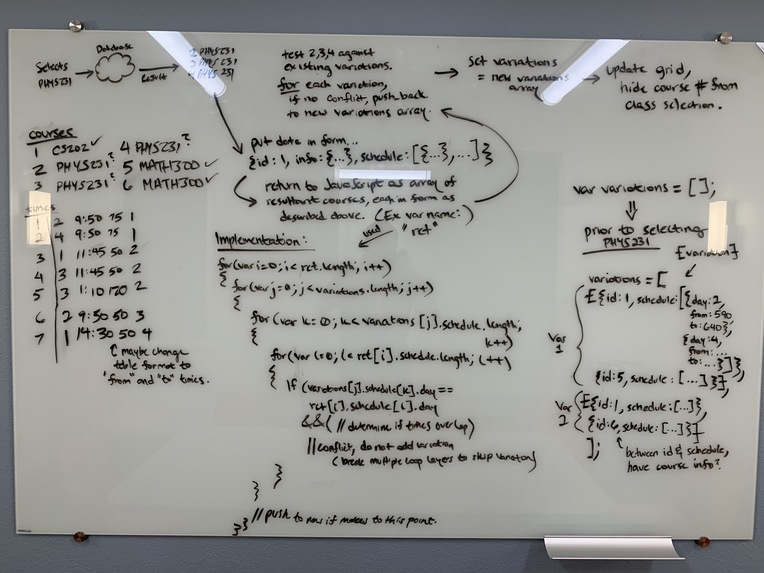 Selects
PHYS231
Database
Result
2 PHYS231
3 PHYS231
4 PHYS231
test 2,3,4 against
existing variations.
for each variation,
if no conflict, push back
to new variations array.
set variations
= new variations
array
update grid,
hide course # from
class selection.
courses
1 CS202 ✓ 4 PHYS231?
2 PHYS231? 5 MATH300 ✓
3 PHYS231? 6 MATH300 ✓
times
1 2 9:50 75 1
2 4 9:50 75 1
3 1 11:45 50 2
4 3 11:45 50 2
5 3 1:10 170 2
6 2 9:50 50 3
7 1 14:30 50 4
maybe change
table format to
"from" and "to" times.
put data in form...
{id: 1, info: {...}, schedule: [{...}, ...]}
return to JavaScript as array of
resultant courses, each in form as
described above. (Ex var name:)
used "ret"
Implementation:
for(var i=0; i< ret.length; i++)
{
for(var j=0; j< variations.length; j++)
{
for(var k=0; k< variations[j].schedule.length;
k++)
{
for(var l=0; l< ret[i].schedule.length; l++)
{
if (variations[j].schedule[k].day ==
ret[i].schedule[l].day
&& ( // determine if times overlap)
// conflict, do not add variation
(break multiple loop layers to skip variation)
}
}
// push to new if makes to this point.
}}
var variations = [];
prior to selecting
PHYS231
[variation]
variations = [
Var
1
[{id: 1, schedule: [{day: 2,
from: 590
to: 640},
{day: 4,
from: ...
to: ...}]},
{id: 5, schedule: [...]}],
Var
2
[{id: 1, schedule: [...]},
{id: 6, schedule: [...]}]
];
between id & schedule,
have course info?